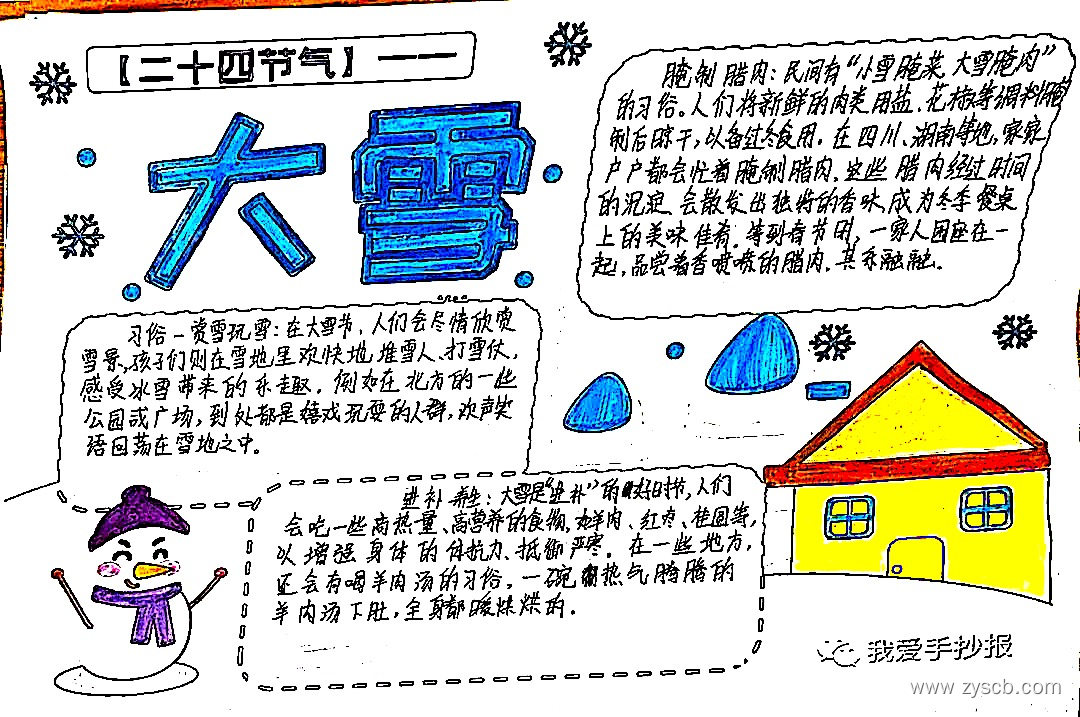 【二十四节气】——
大雪
腌制腊肉：民间有“小雪腌菜，大雪腌肉”
的习俗。人们将新鲜的肉类用盐、花椒等调料腌
制后晾干，以备过冬食用。在四川、湖南等地，家家
户户都会忙着腌制腊肉，这些腊肉经过时间
的沉淀，会散发出独特的香味，成为冬季餐桌
上的美味佳肴。等到春节时，一家人围座在一
起，品尝着香喷喷的腊肉，其乐融融。
习俗-赏雪玩雪：在大雪节，人们会尽情欣赏
雪景，孩子们则在雪地里欢快地堆雪人、打雪仗，
感受冰雪带来的乐趣。例如在北方的一些
公园或广场，到处都是嬉戏玩耍的人群，欢声笑
语回荡在雪地之中。
进补养生：大雪是“进补”的好时节，人们
会吃一些高热量、高营养的食物，如羊肉、红枣、桂圆等，
以增强身体的抵抗力、抵御严寒。在一些地方，
还会有喝羊肉汤的习俗，一碗热气腾腾的
羊肉汤下肚，全身都暖烘烘的。
我爱手抄报
www.zyscb.com